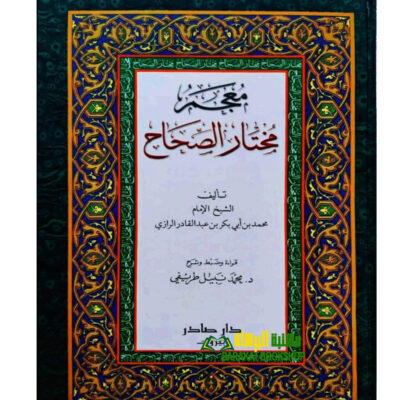 مختار الصحاح مختار الصحاح مختار الصحاح مختار الصحاح
معجم
مختار الصحاح
تأليف
الشيخ الإمام
محمد بن أبي بكر بن عبد القادر الرازي
قراءة وضبط وشرح
د. محمد نبيل طريفي
دار صادر
بيروت
مكتبة البركة
BARAKAT BOOKSHOP